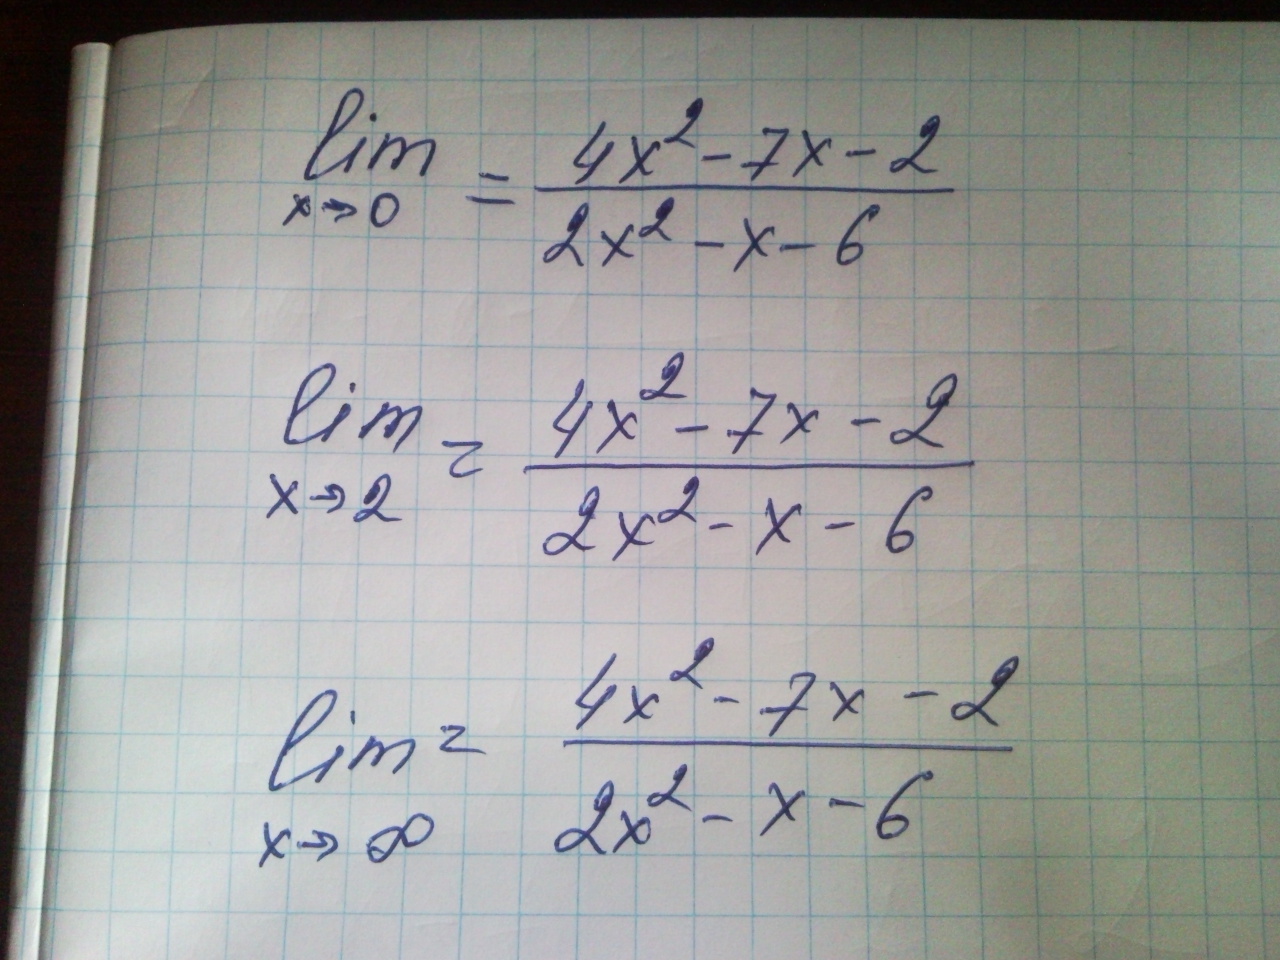 lim x→0 = (4x² - 7x - 2) / (2x² - x - 6)
lim x→2 = (4x² - 7x - 2) / (2x² - x - 6)
lim x→∞ = (4x² - 7x - 2) / (2x² - x - 6)